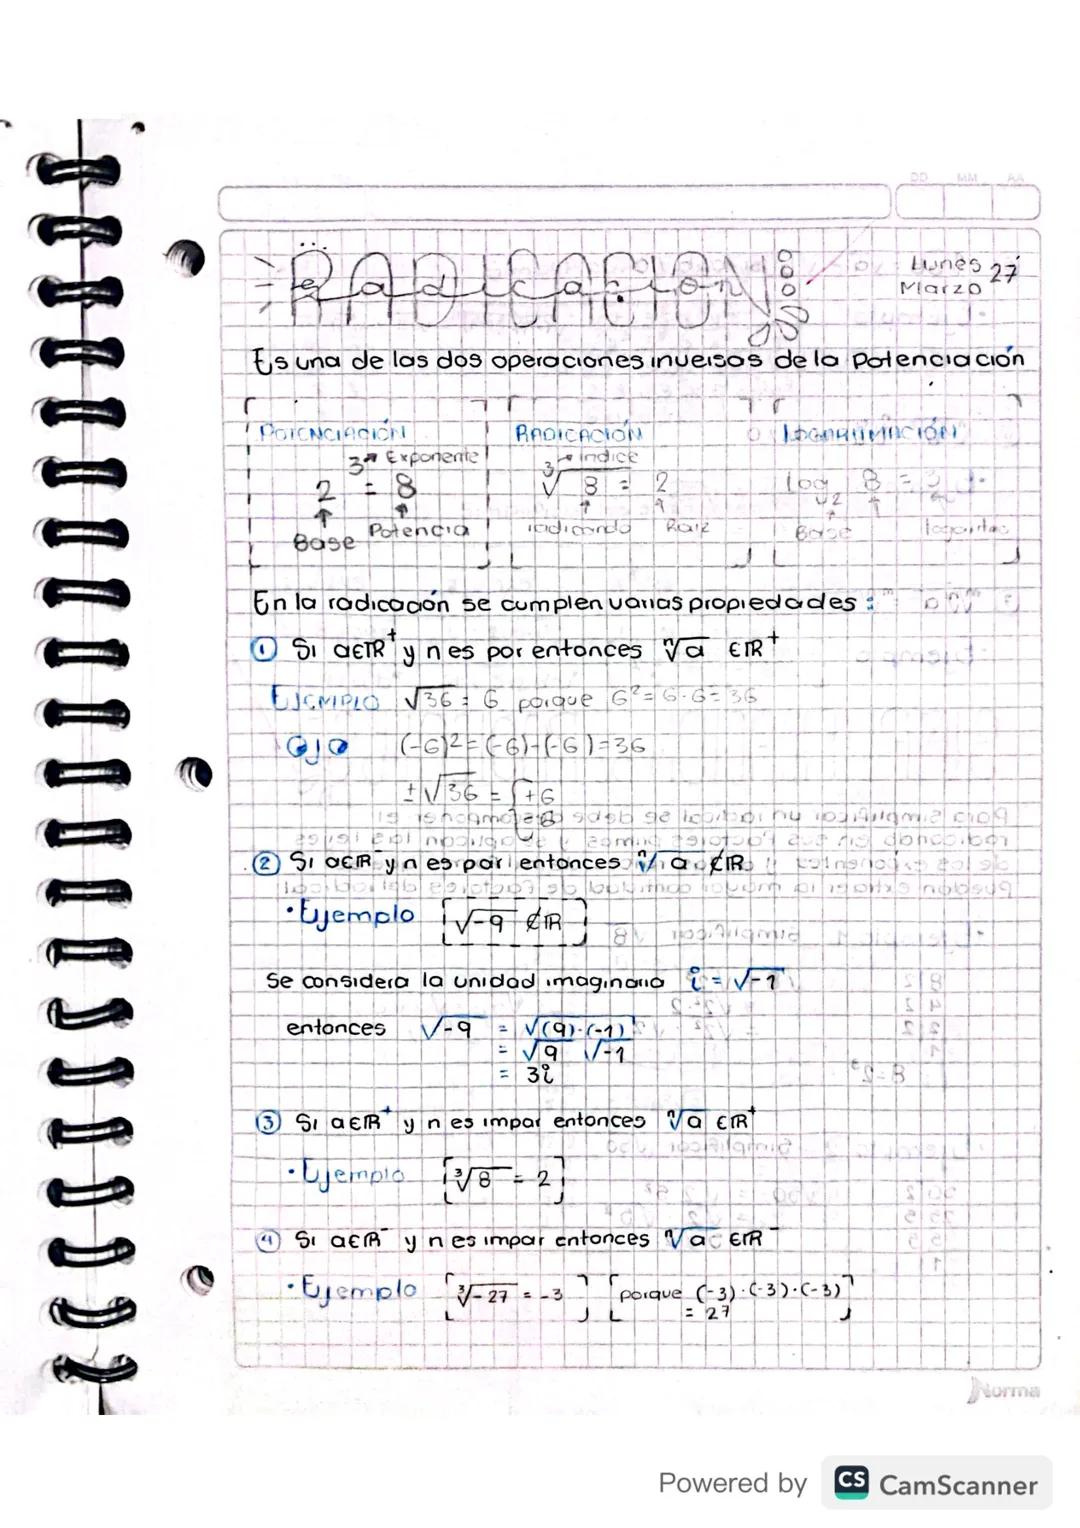 DD MM AA
RADICACION
Lunes 27
Marzo
Es una de las dos operaciones inversas de la Potenciación
POTENCIACIÓN RADICACIÓN
3 Exponente 3 indice
2 = 8 √8 = 2 Log 2 8 = 3
Base Potencia radicando Raiz Base
En la radicación se cumplen varias propiedades:
① Si a∈ℝ⁺ y n es par entonces ⁿ√a ∈ℝ⁺
EJEMPLO √36 = 6 porque 6² = 6·6 = 36
OJO (-6)² = (-6)·(-6) = 36
±√36 = { +6
-6
② Si a∈ℝ⁻ y n es par entonces ⁿ√a ∉ℝ
•Ejemplo [√-9 ∉ℝ]
Se considera la unidad imaginaria i = √-1
entonces √-9 = √(9)·(-1)
= √9 √-1
= 3i
③ Si a∈ℝ⁺ y n es impar entonces ⁿ√a ∈ℝ⁺
•Ejemplo [³√8 = 2]
④ Si a∈ℝ⁻ y n es impar entonces ⁿ√a ∈ℝ⁻
•Ejemplo [³√-27 = -3] [porque (-3)·(-3)·(-3)
= 27]
Norma
Powered by CS CamScanner